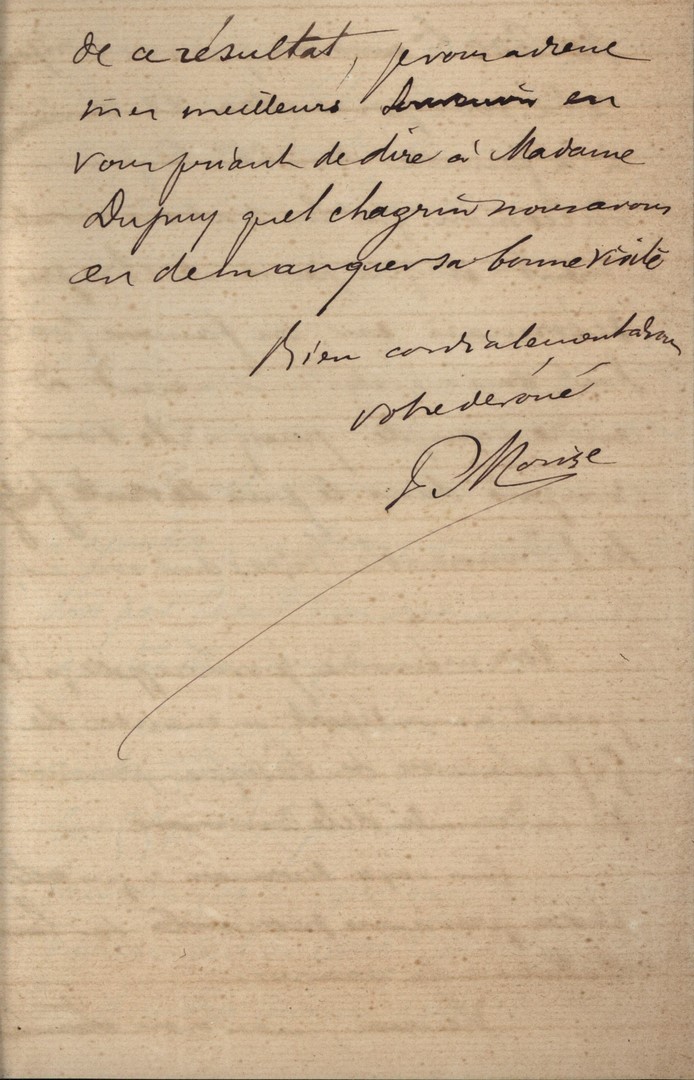 de ce résultat, je vous adresse
mes meilleurs souvenirs en
vous priant de dire à Madame
Dupuy quel chagrin nous avons
eu de manquer sa bonne visite
Bien cordialement à vous
votre dévoué